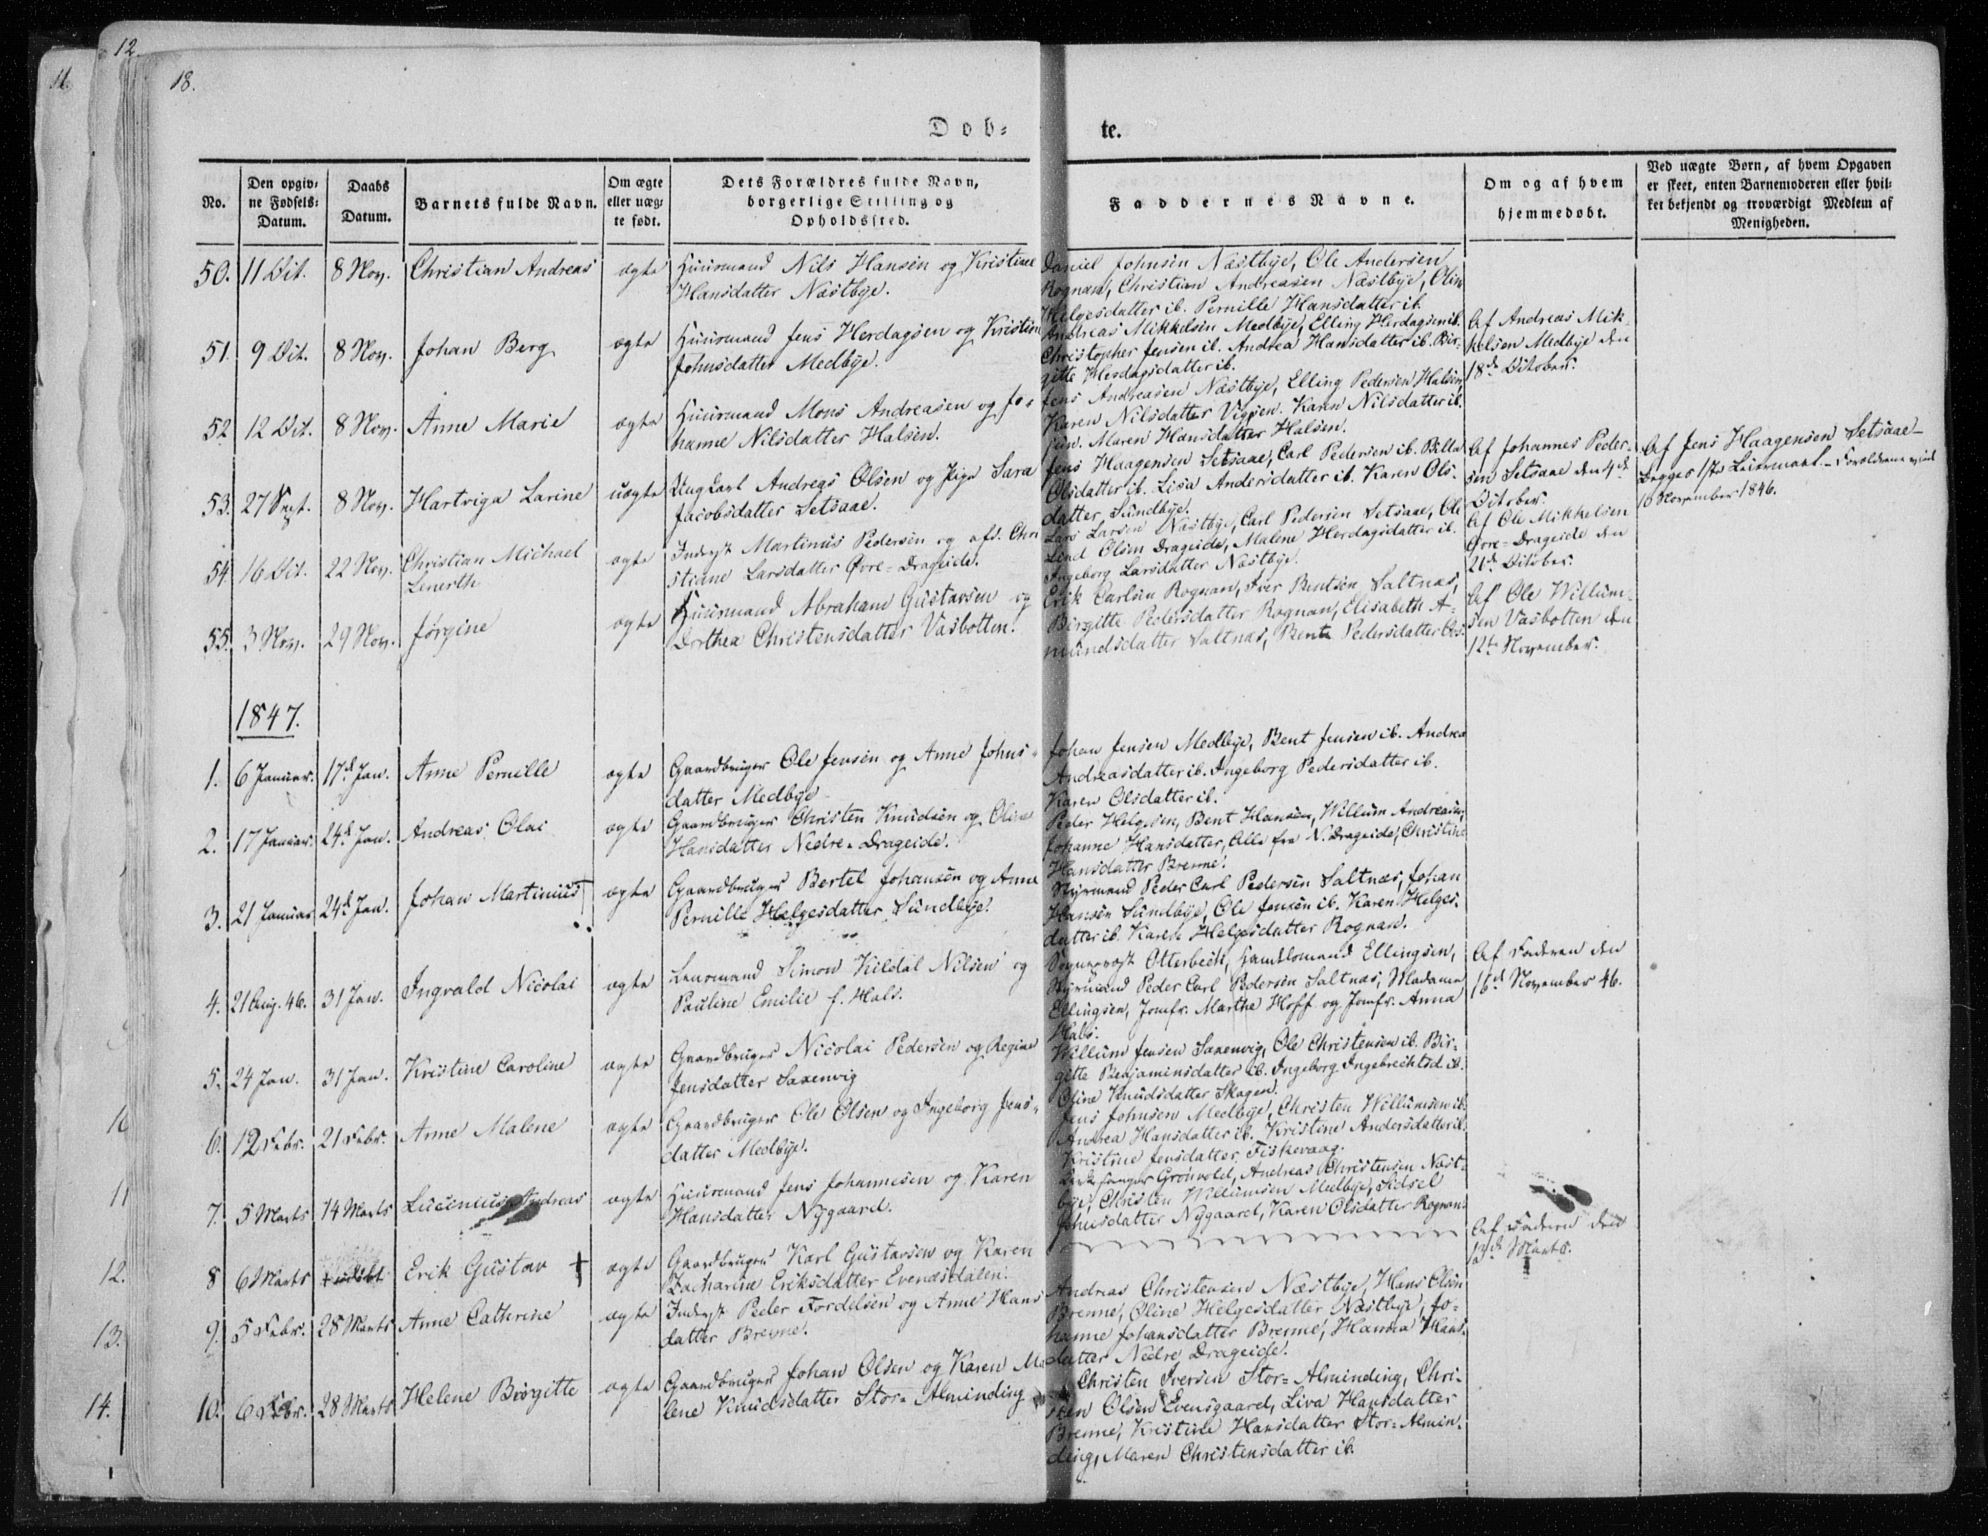 11.
12.
18.
Dob-
te.
No.
Den opgiv-
ne Fødsels-
Datum.
Daabs
Datum.
Barnets fulde Navn.
Om ægte
eller uæg-
te født.
Dets Forældres fulde Navn,
borgerlige Stilling og
Opholdssted.
Faddernes Navne.
Om og af hvem
hjemmedøbt.
Ved uægte Børn, af hvem Opgaven
er skeet, enten Barnemoderen eller hvil-
ket bekjendt og troværdigt Medlem af
Menigheden.
50. 11 Oct. 8 Nov. Christian Andreas ægte Huusmand Nils Hansen og Kristine
Hansdatter Næstbye.
Daniel Johnsen Næstbye, Ole Andersen
Rognan, Christian Andreasen Næstbye, Olin
Helgesdatter ib. Pernille Hansdatter ib.
51. 9 Oct. 8 Nov. Johan Berg ægte Huusmand Jens Herdagsen og Kristine
Johnsdatter Medbye.
Andreas Mikkelsen Medbye, Elling Herdagsen ib.
Christopher Jensen ib. Andrea Hansdatter ib. Bir-
gitte Herdagsdatter ib.
Af Andreas Mik-
kelsen Medbye den
18de October.
52. 12 Oct. 8 Nov. Anne Marie ægte Huusmand Mons Andreasen og Jo-
hanne Nilsdatter Halsen.
Jens Andreasen Næstbye, Elling Pedersen Halsen,
Karen Nilsdatter Vigsen. Karen Nilsdatter ib.
Maren Hansdatter Halsen.
53. 27 Sept. 8 Nov. Hartviga Larine uægte Ungkarl Andreas Olsen og Pige Sara
Jacobsdatter Setsaae.
Jens Haagensen Setsaae, Carl Pedersen ib. Pella
Olsdatter ib. Lisa Andersdatter ib. Karen Ols-
datter Sundbye.
Af Johannes Peder-
sen Setsaae den 4de
October.
Af Jens Haagensen Setsaae
Begges 1ste Leiermaal. - Forældrene viet
10 November 1846.
54. 16 Oct. 22 Nov. Christian Michael
Lenerth
ægte Inderst Martinus Pedersen og afd. Chri
stiane Larsdatter Øvre-Drageide.
Lars Larsen Næstbye, Carl Pedersen Setsaae, Ole
Lind Olsen Drageide, Malene Herdagsdatter ib.
Ingeborg Larsdatter Næstbye.
Af Ole Mikkelsen
Øvre-Drageide den
21de October.
55. 3 Nov. 29 Nov. Jørgine ægte Huusmand Abraham Gustavsen og
Dorthea Christensdatter Vasbotten.
Erik Carlsen Rognan, Iver Bentsen Saltnæs,
Birgitte Pedersdatter Rognan, Elisabeth A-
mundsdatter Saltnæs, Bente Pedersdatter
Af Ole Willum-
sen Vasbotten den
12te November.
1847.
1. 6 Januar. 17de Jan. Anne Pernille ægte Gaardbruger Ole Jensen og Anne Johns-
datter Medbye
Johan Jensen Medbye, Bent Jensen ib. Andrea
Andreasdatter ib. Ingeborg Pedersdatter ib.
Karen Olsdatter ib.
2. 17 Januar. 24de Jan. Andreas Olai ægte Gaardbruger Christen Knudsen og Oline
Hansdatter Nedre-Drageide.
Peder Helgesen, Bent Hansen, Willum Andreasen,
Johanne Hansdatter, Alle fra N. Drageide, Christine
Hansdatter Brenne.
3. 21 Januar 24de Jan. Johan Martinius † ægte Gaardbruger Bertel Johansen og Anne
Pernille Helgesdatter Sundbye.
Styrmand Peder Carl Pedersen Saltnæs, Johan
Hansen Sundbye, Ole Jensen ib. Karen Helges-
datter ib. Karen Helgesdatter Rognan.
4. 21 Aug. 46. 31 Jan. Ingvald Nicolai ægte Lensmand Simon Kildal Nilsen og
Pauline Emilie f. Hals.
Sogneprest Otterbech, Handlsmand Ellingsen,
Styrmand Peder Carl Pedersen Saltnæs, Madame
Ellingsen, Jomfr. Marthe Hoff og Jomfr. Anna
Hals.
Af Faderen den
16de November 46.
5. 24 Jan. 31 Jan. Kristine Caroline ægte Gaardbruger Nicolai Pedersen og Regine
Jensdatter Saxenvig
Willum Jensen Saxenvig, Ole Christensen ib. Bir-
gitte Benjaminsdatter ib. Ingeborg Ingebrechtsd. ib.
Oline Knudsdatter Skagen.
6. 12 Febr. 21 Febr. Anne Malene ægte Gaardbruger Ole Olsen og Ingeborg Jens-
datter Medbye.
Jens Johnsen Medbye, Christen Willumsen ib.
Andrea Hansdatter ib. Kristine Andersdatter ib.
Kristine Jensdatter Fiskevaag.
7. 5 Marts 14 Marts Lucinius Andreas ægte Huusmand Jens Johannesen og Karen
Hansdatter Nygaard.
Grønvold, Andreas Christensen Næst-
bye, Christen Willumsen Medbye, Sidsel
Johnsdatter Nygaard, Karen Olsdatter Rognan.
8 6 Marts Erik Gustav † ægte Gaardbruger Karl Gustavsen og Karen
Zacharine Eriksdatter Evenæsdalen.
Af Faderen den
13de Marts.
9. 5 Febr. 28 Marts Anne Cathrine ægte Inderst Peder Fordelsen og Anne Hans
datter Brenne.
Andreas Christensen Næstbye, Hans Olsen
Brenne, Oline Helgesdatter Næstbye, Jo-
hanne Johansdatter Brenne, Hanna Hans-
datter Nedre Drageide.
10. 6 Febr. 28 Marts Helene Birgitte ægte Gaardbruger Johan Olsen og Karen Ma
lene Knudsdatter Stor-Alminding
Christen Iversen Stor-Alminding, Chri-
sten Olsen Evensgaard, Liva Hansdatter
Brenne, Kristine Hansdatter Stor-Almin-
ding, Maren Christensdatter ib.
10
11
12.
13.
14.